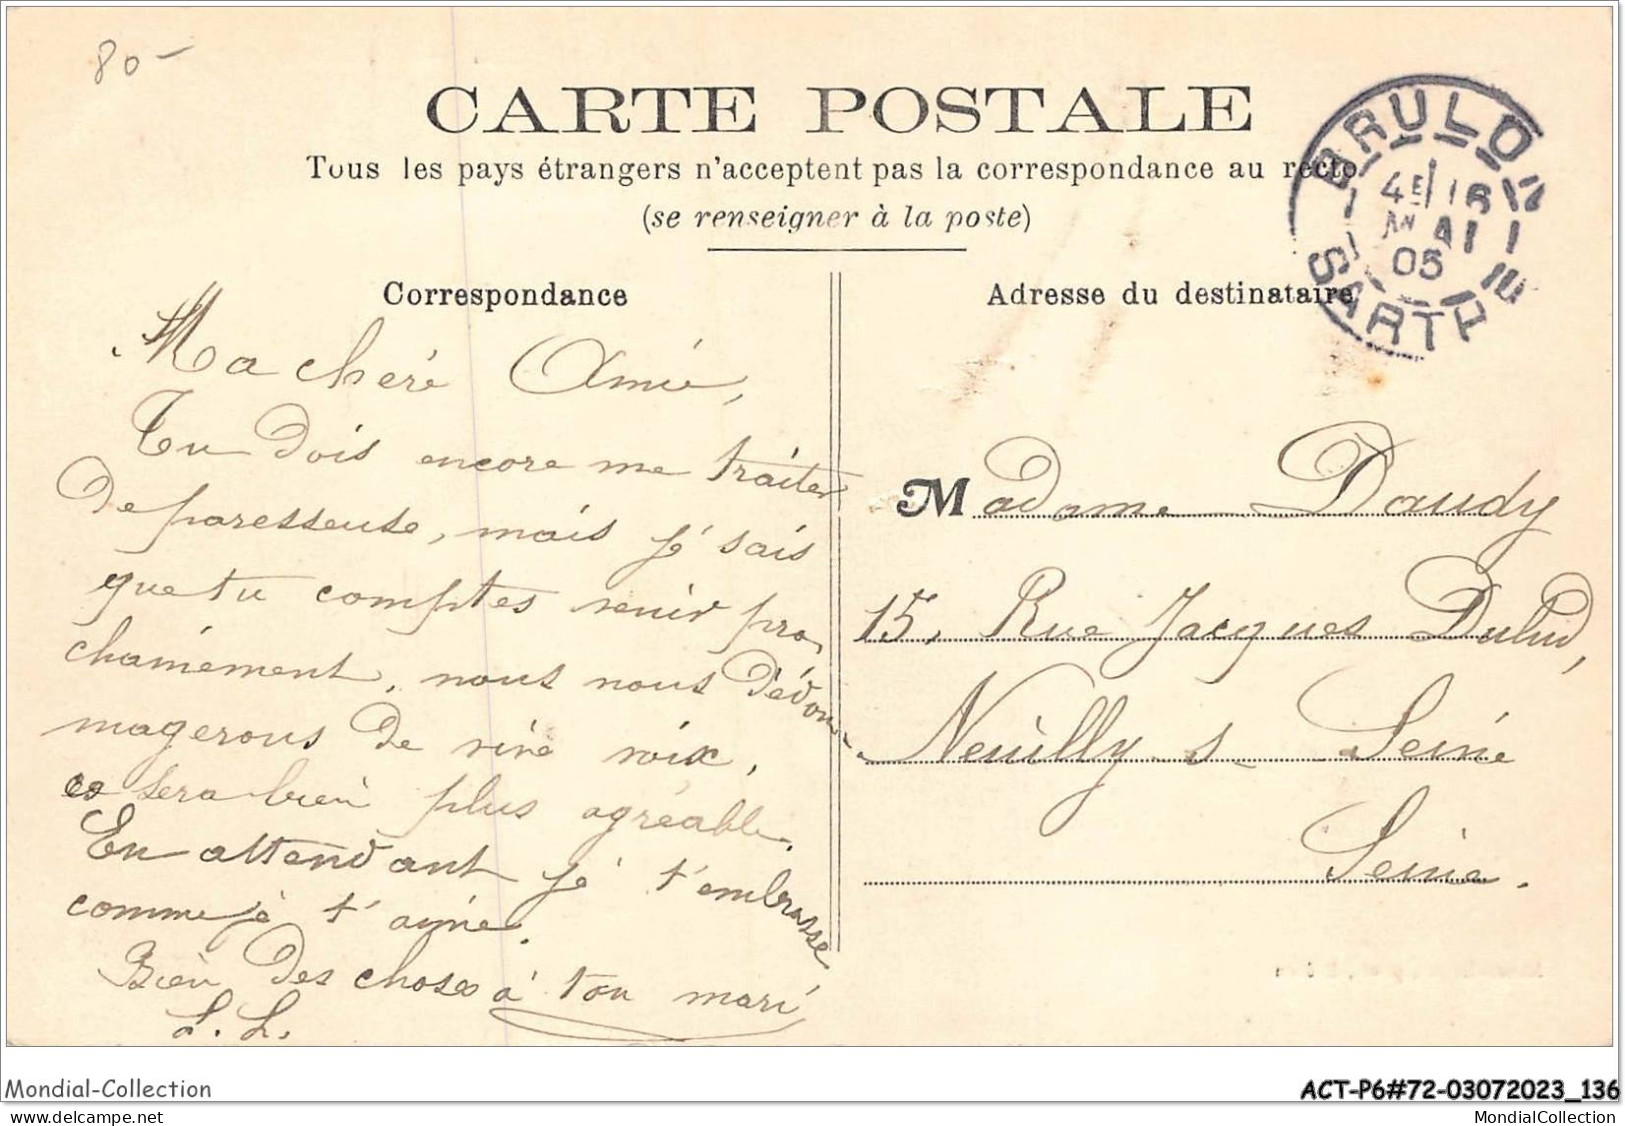 80-
CARTE POSTALE
Tous les pays étrangers n'acceptent pas la correspondance au recto
(se renseigner à la poste)
BRULON
4E 16
MAI
05
SARTHE
Correspondance
Ma chère Amie,
Tu dois encore me traiter
de paresseuse, mais je sais
que tu comptes venir pro-
chainement, nous nous dédom-
magerons de vive voix,
ce sera bien plus agréable.
En attendant je t'embrasse
comme je t'aime.
Bien des choses à ton mari
L. L.
Adresse du destinataire
Madame Daudy
15, Rue Jacques Dulud,
Neuilly s- Seine
Seine.
Mondial-Collection
ACT-P6#72-03072023_136
www.delcampe.net
MondialCollection